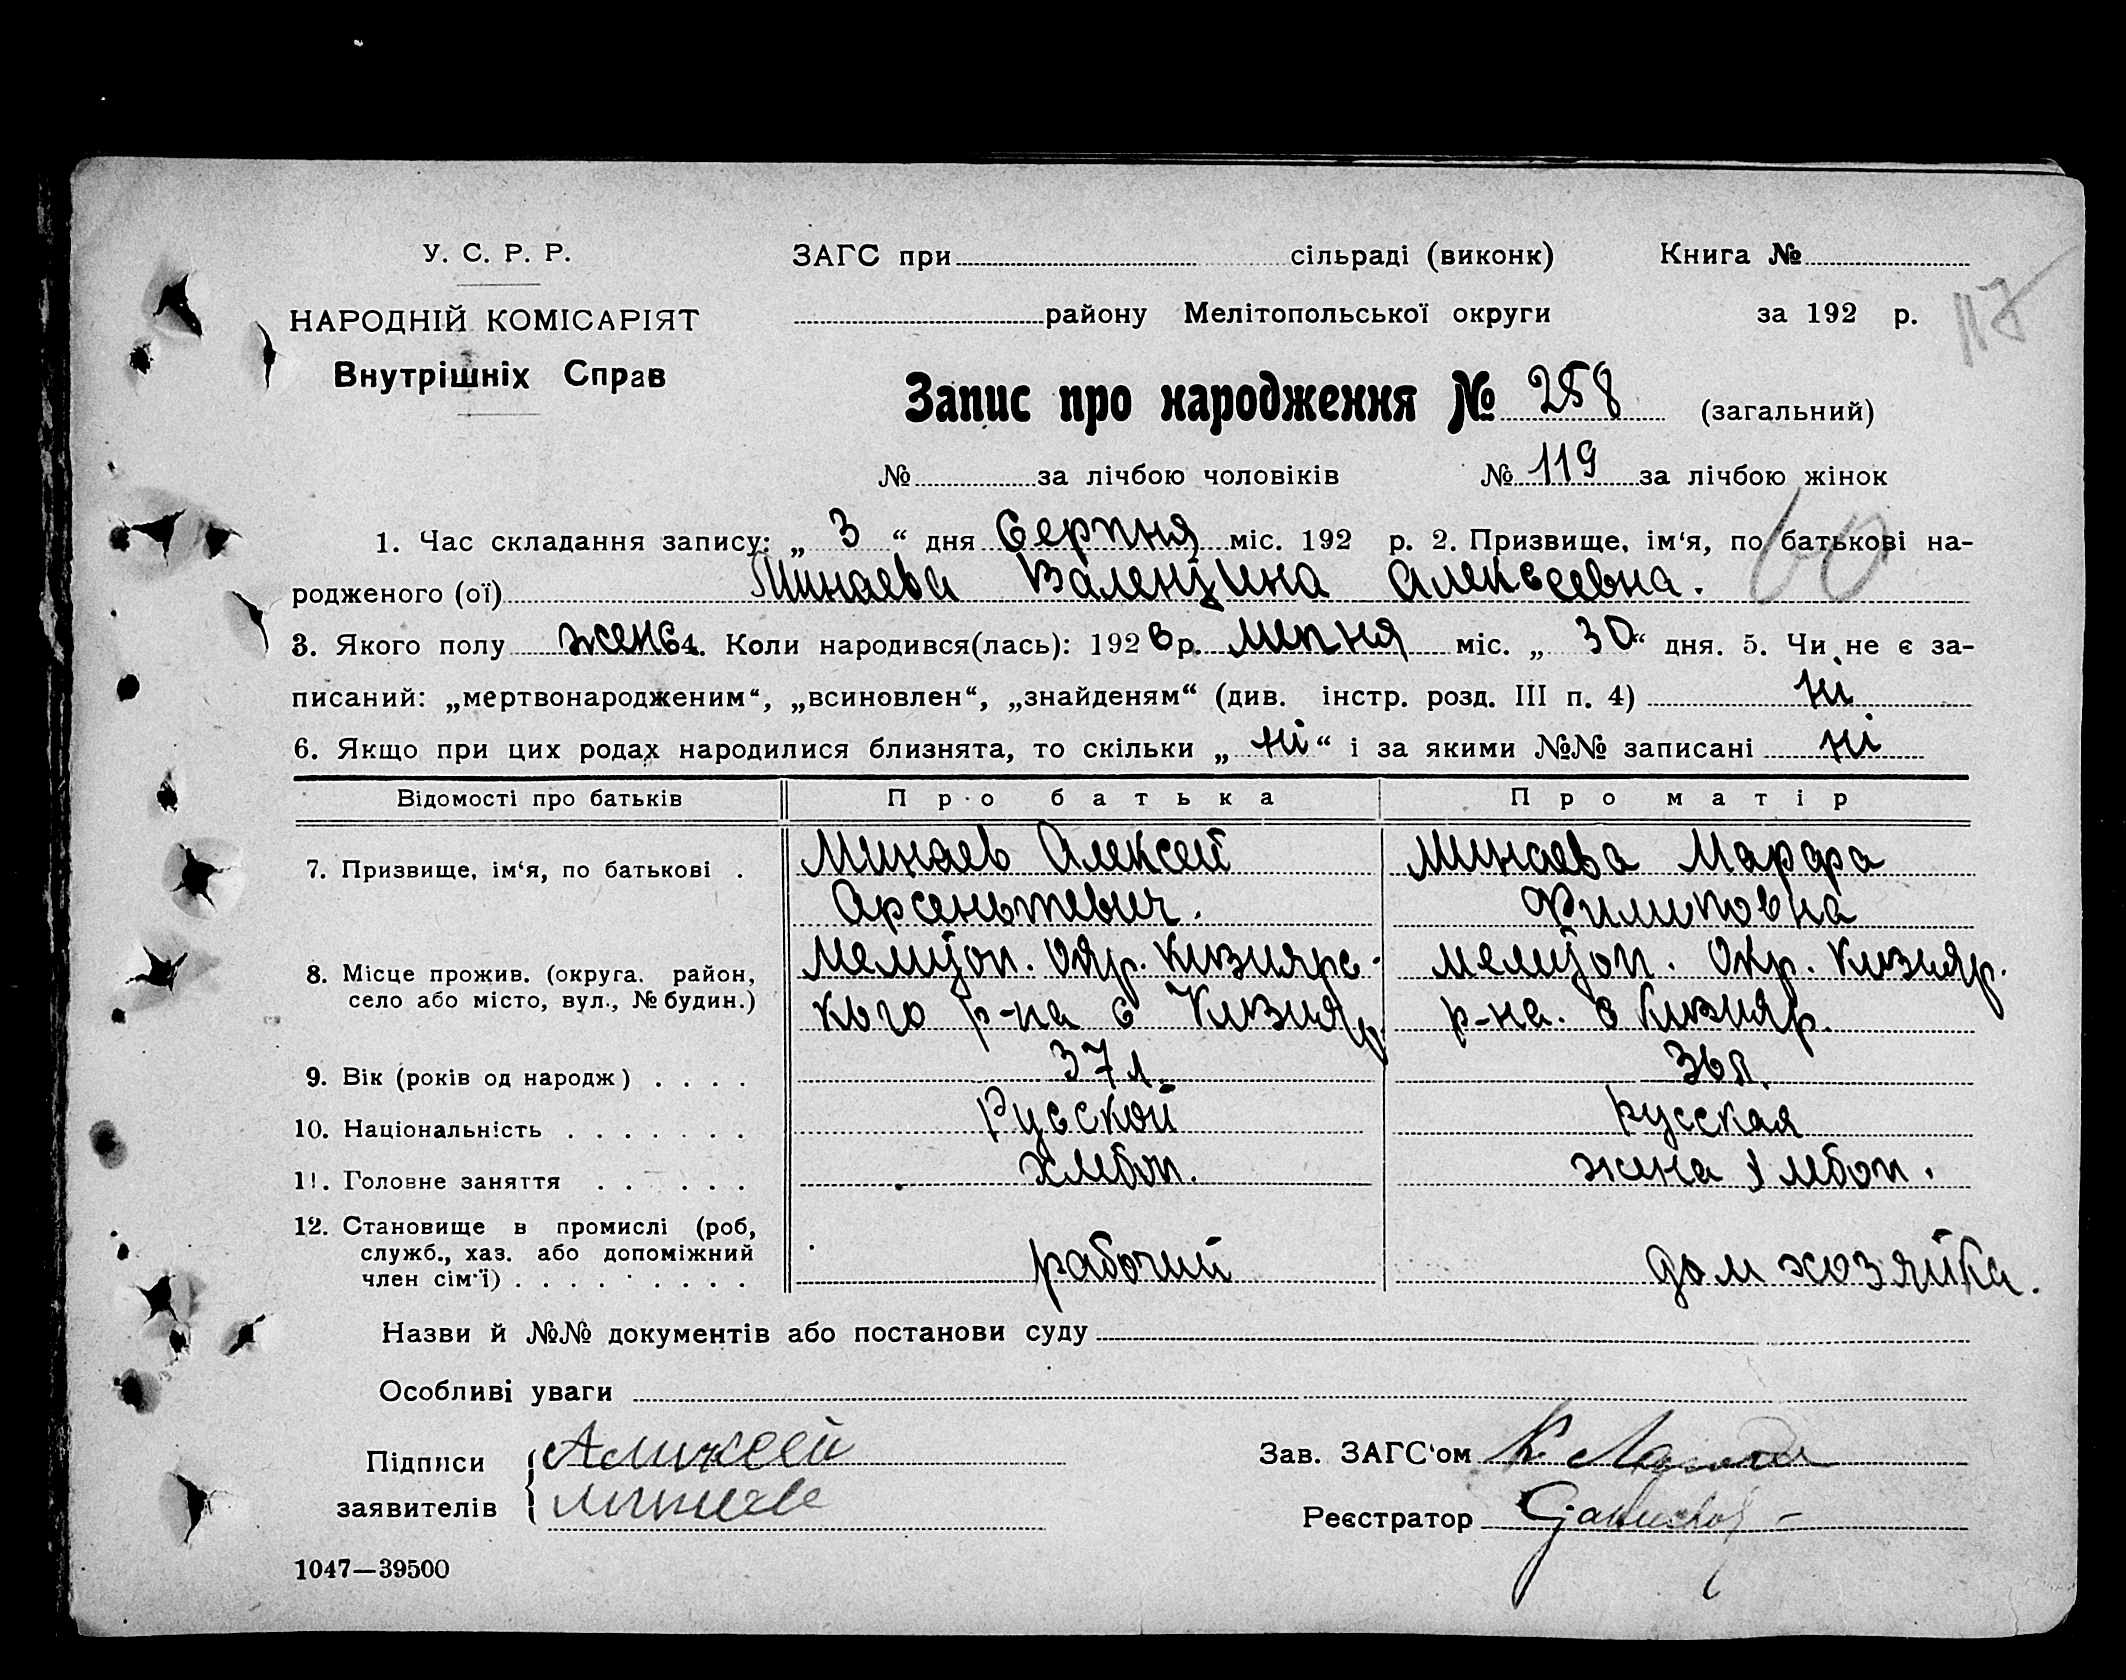 У. С. Р. Р.
НАРОДНІЙ КОМІСАРІЯТ
Внутрішніх Справ
ЗАГС при сільраді (виконк) Книга №
району Мелітопольської округи за 192 р.
117
Запис про народження № 258 (загальний)
№ за лічбою чоловіків № 119 за лічбою жінок
1. Час складання запису: „ 3 “ дня Серпня міс. 192 р. 2. Призвище, ім‘я, по батькові на-
родженого (ої) Минаева Валентина Алексеевна.
60
3. Якого полу жен 4. Коли народився(лась): 1926 р. липня міс. „ 30 “ дня. 5. Чи не є за-
писаний: „мертвонародженим“, „всиновлен“, „знайденям“ (див. інстр. розд. III п. 4) ні
6. Якщо при цих родах народилися близнята, то скільки „ ні “ і за якими №№ записані ні
Відомості про батьків Про батька Про матір
7. Призвище, ім‘я, по батькові . Минаев Алексей Минаева Марфа
Арсентьевич. Филиповна
8. Місце прожив. (округа, район, Мелитоп. Окр. Кизиярс- мелитоп. Окр. Кизияр.
село або місто, вул., № будин.) кого р-на с Кизияр р-на. с Кизияр.
9. Вік (років од народж) . . . . 37 л. 36 л.
10. Національність . . . . . . . Русской русская
11. Головне заняття . . . . . . хлебоп. жена хлебоп.
12. Становище в промислі (роб,
служб., хаз. або допоміжний
член сім‘ї) . . . . . . . . . рабочий дом хозяйка.
Назви й №№ документів або постанови суду
Особливі уваги
Підписи Алексей Зав. ЗАГС‘ом
заявителів Минаев Реєстратор
1047—39500